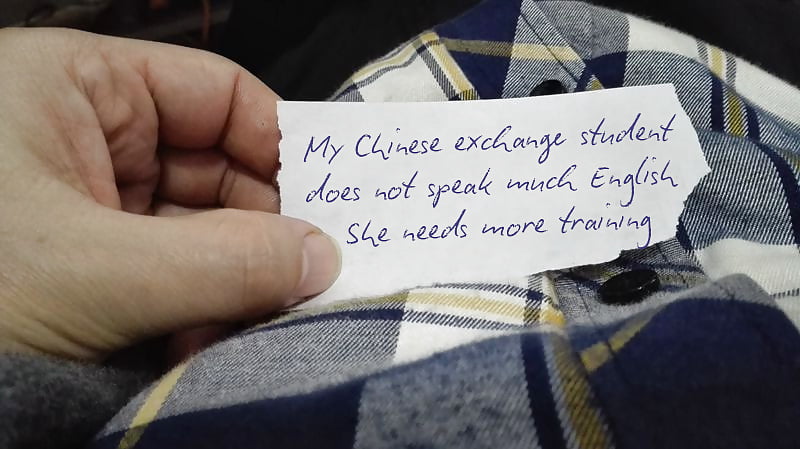 My Chinese exchange student
does not speak much English
She needs more training